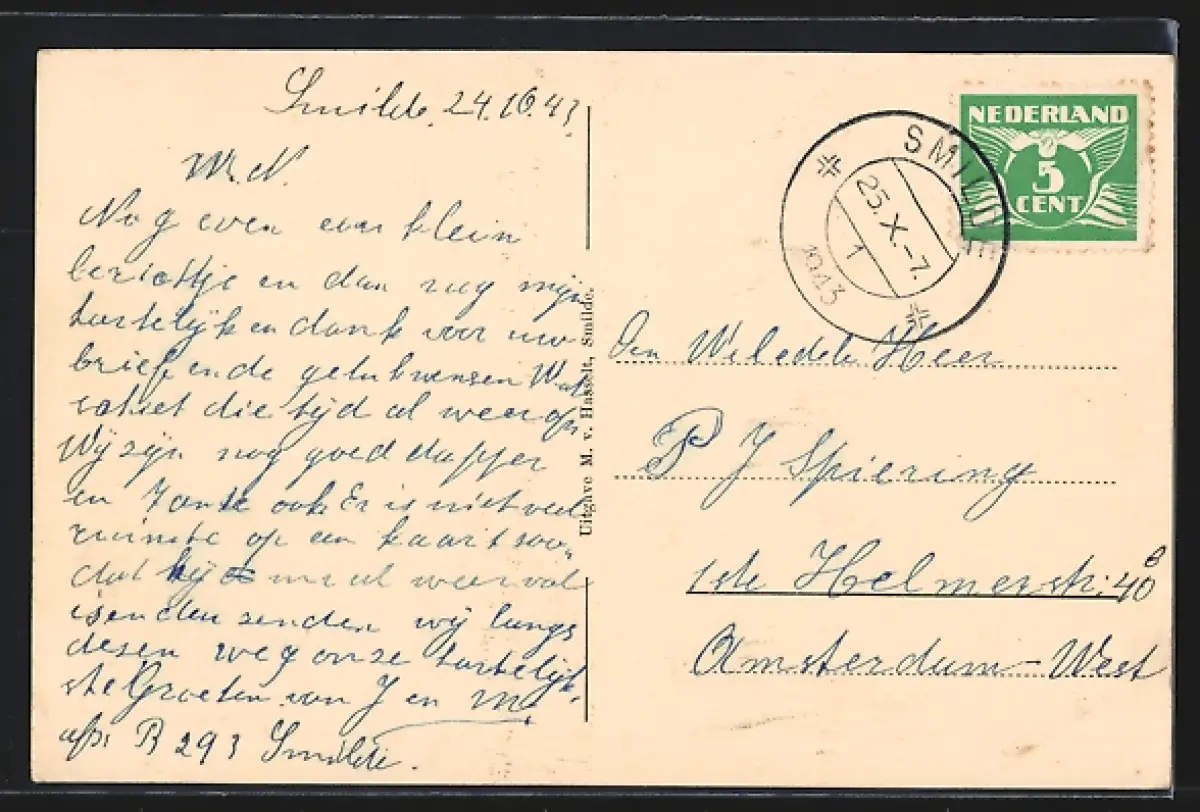 Smilde, 24.10.43.
M. N.
Nog even een klein
berichtje en dan nog mijn
hartelijken dank voor uw
brief en de gelukwensen Wat
schiet die tijd al weer op
Wij zijn nog goed dapper
en Tante ook Er is niet veel
ruimte op een kaart zoo
dat hij nu al weer vol
is en dan zenden wij langs
dezen weg onze hartelijk-
ste Groeten van J en M.
afz: B 293 Smilde.
Uitgave M. v. Hasselt, Smilde.
NEDERLAND
5
CENT
SMILDE
25.X.-7.
1
1943
Den Weledele Heer
P J Spiering
1ste Helmerstr: 40
Amsterdam-West